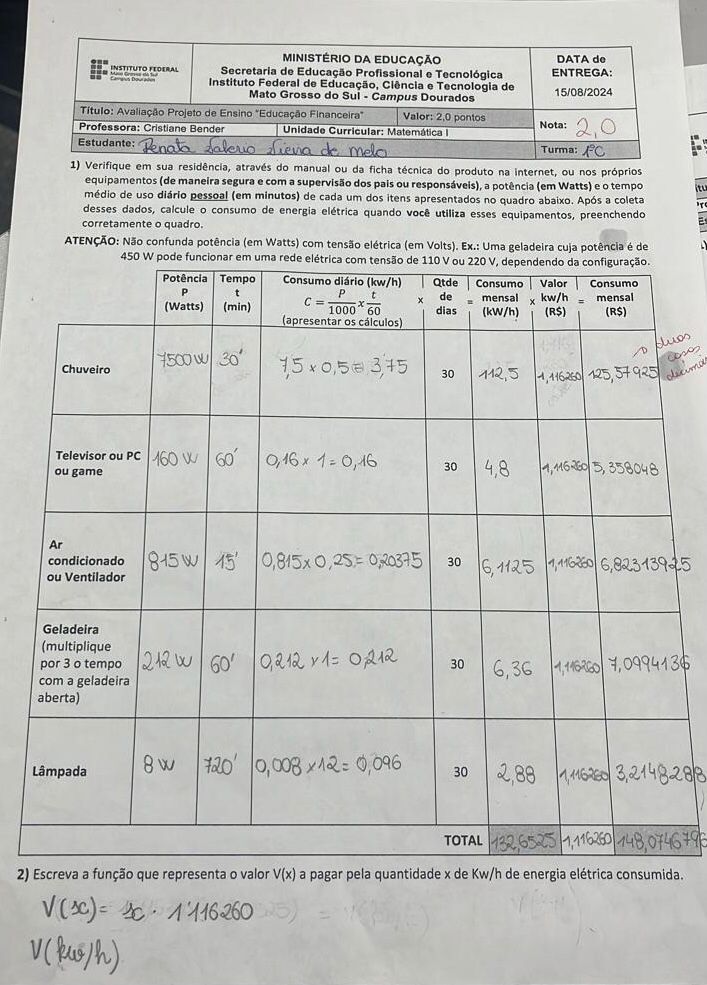 INSTITUTO FEDERAL
Mato Grosso do Sul
Campus Dourados
MINISTÉRIO DA EDUCAÇÃO
Secretaria de Educação Profissional e Tecnológica
Instituto Federal de Educação, Ciência e Tecnologia de
Mato Grosso do Sul - Campus Dourados
DATA de
ENTREGA:
15/08/2024
Título: Avaliação Projeto de Ensino "Educação Financeira" Valor: 2,0 pontos
Professora: Cristiane Bender Unidade Curricular: Matemática I
Nota: 2,0
Estudante: Renata de melo
Turma: 1°C
1) Verifique em sua residência, através do manual ou da ficha técnica do produto na internet, ou nos próprios
equipamentos (de maneira segura e com a supervisão dos pais ou responsáveis), a potência (em Watts) e o tempo
médio de uso diário pessoal (em minutos) de cada um dos itens apresentados no quadro abaixo. Após a coleta
desses dados, calcule o consumo de energia elétrica quando você utiliza esses equipamentos, preenchendo
corretamente o quadro.
ATENÇÃO: Não confunda potência (em Watts) com tensão elétrica (em Volts). Ex.: Uma geladeira cuja potência é de
450 W pode funcionar em uma rede elétrica com tensão de 110 V ou 220 V, dependendo da configuração.
Potência P (Watts) Tempo t (min) Consumo diário (kw/h) C = P/1000 x t/60 (apresentar os cálculos) x Qtde de dias = Consumo mensal (kW/h) x Valor kw/h (R$) = Consumo mensal (R$)
Chuveiro 7500 W 30' 7,5 x 0,5 = 3,75 30 112,5 1,116260 125,57925
duas
casas
decimais
Televisor ou PC ou game 160 W 60' 0,16 x 1 = 0,16 30 4,8 1,116260 5,358048
Ar condicionado ou Ventilador 815 W 15' 0,815 x 0,25 = 0,20375 30 6,1125 1,116260 6,82313925
Geladeira (multiplique por 3 o tempo com a geladeira aberta) 212 W 60' 0,212 x 1 = 0,212 30 6,36 1,116260 7,0994136
Lâmpada 8 W 720' 0,008 x 12 = 0,096 30 2,88 1,116260 3,2148288
TOTAL 132,6525 1,116260 148,0746796
2) Escreva a função que representa o valor V(x) a pagar pela quantidade x de Kw/h de energia elétrica consumida.
V(x) = x · 1'116260
V(kw/h)